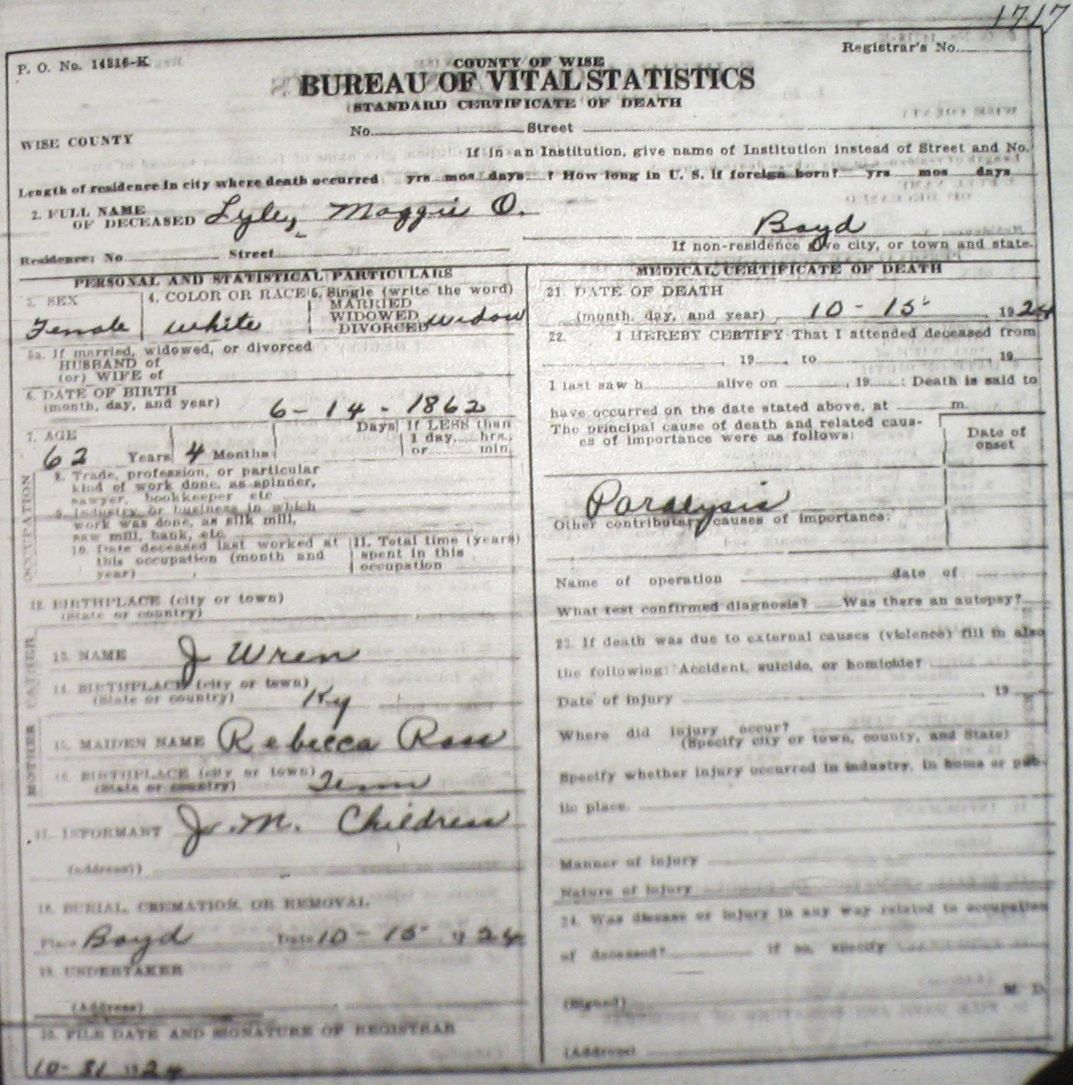 1717
P. O. No. 14216-K
Registrar's No.
COUNTY OF WISE
BUREAU OF VITAL STATISTICS
STANDARD CERTIFICATE OF DEATH
WISE COUNTY
No. Street
If in an Institution, give name of Institution instead of Street and No.
Length of residence in city where death occurred yrs mos days ? How long in U. S. if foreign born? yrs mos days
2. FULL NAME OF DECEASED Lyles, Maggie O.
Boyd
Residence: No Street
If non-residence give city, or town and state.
PERSONAL AND STATISTICAL PARTICULARS
3. SEX Female
4. COLOR OR RACE White
5. Single (write the word)
MARRIED
WIDOWED
DIVORCED Widow
5a. If married, widowed, or divorced
HUSBAND of
(or) WIFE of
6. DATE OF BIRTH
(month, day, and year) 6-14-1862
7. AGE 62 Years 4 Months Days If LESS than
1 day, hrs.
or min.
OCCUPATION
8. Trade, profession, or particular
kind of work done, as spinner,
sawyer, bookkeeper etc
9. Industry or business in which
work was done, as silk mill,
saw mill, bank, etc.
10. Date deceased last worked at
this occupation (month and
year)
11. Total time (years)
spent in this
occupation
12. BIRTHPLACE (city or town)
(State or country)
FATHER
13. NAME J Wren
14. BIRTHPLACE (city or town)
(State or country) Ky
MOTHER
15. MAIDEN NAME Rebecca Ross
16. BIRTHPLACE (city or town)
(State or country) Tenn
17. INFORMANT J. M. Childress
(address)
18. BURIAL, CREMATION, OR REMOVAL
Place Boyd Date 10-15- 1924
19. UNDERTAKER
(Address)
20. FILE DATE AND SIGNATURE OF REGISTRAR
10-31 1924
MEDICAL CERTIFICATE OF DEATH
21. DATE OF DEATH
(month, day, and year) 10-15- 1924
22. I HEREBY CERTIFY That I attended deceased from
, 19 to , 19
I last saw h alive on , 19 : Death is said to
have occurred on the date stated above, at m.
The principal cause of death and related caus-
es of importance were as follows:
Date of
onset
Paralysis
Other contributary causes of importance:
Name of operation date of
What test confirmed diagnosis? Was there an autopsy?
23. If death was due to external causes (violence) fill in also
the following: Accident, suicide, or homicide?
Date of injury , 19
Where did injury occur?
(Specify city or town, county, and State)
Specify whether injury occurred in industry, in home or pub-
lic place.
Manner of injury
Nature of injury
24. Was disease or injury in any way related to occupation
of deceased? if so, specify
(Signed) M. D.
(Address)